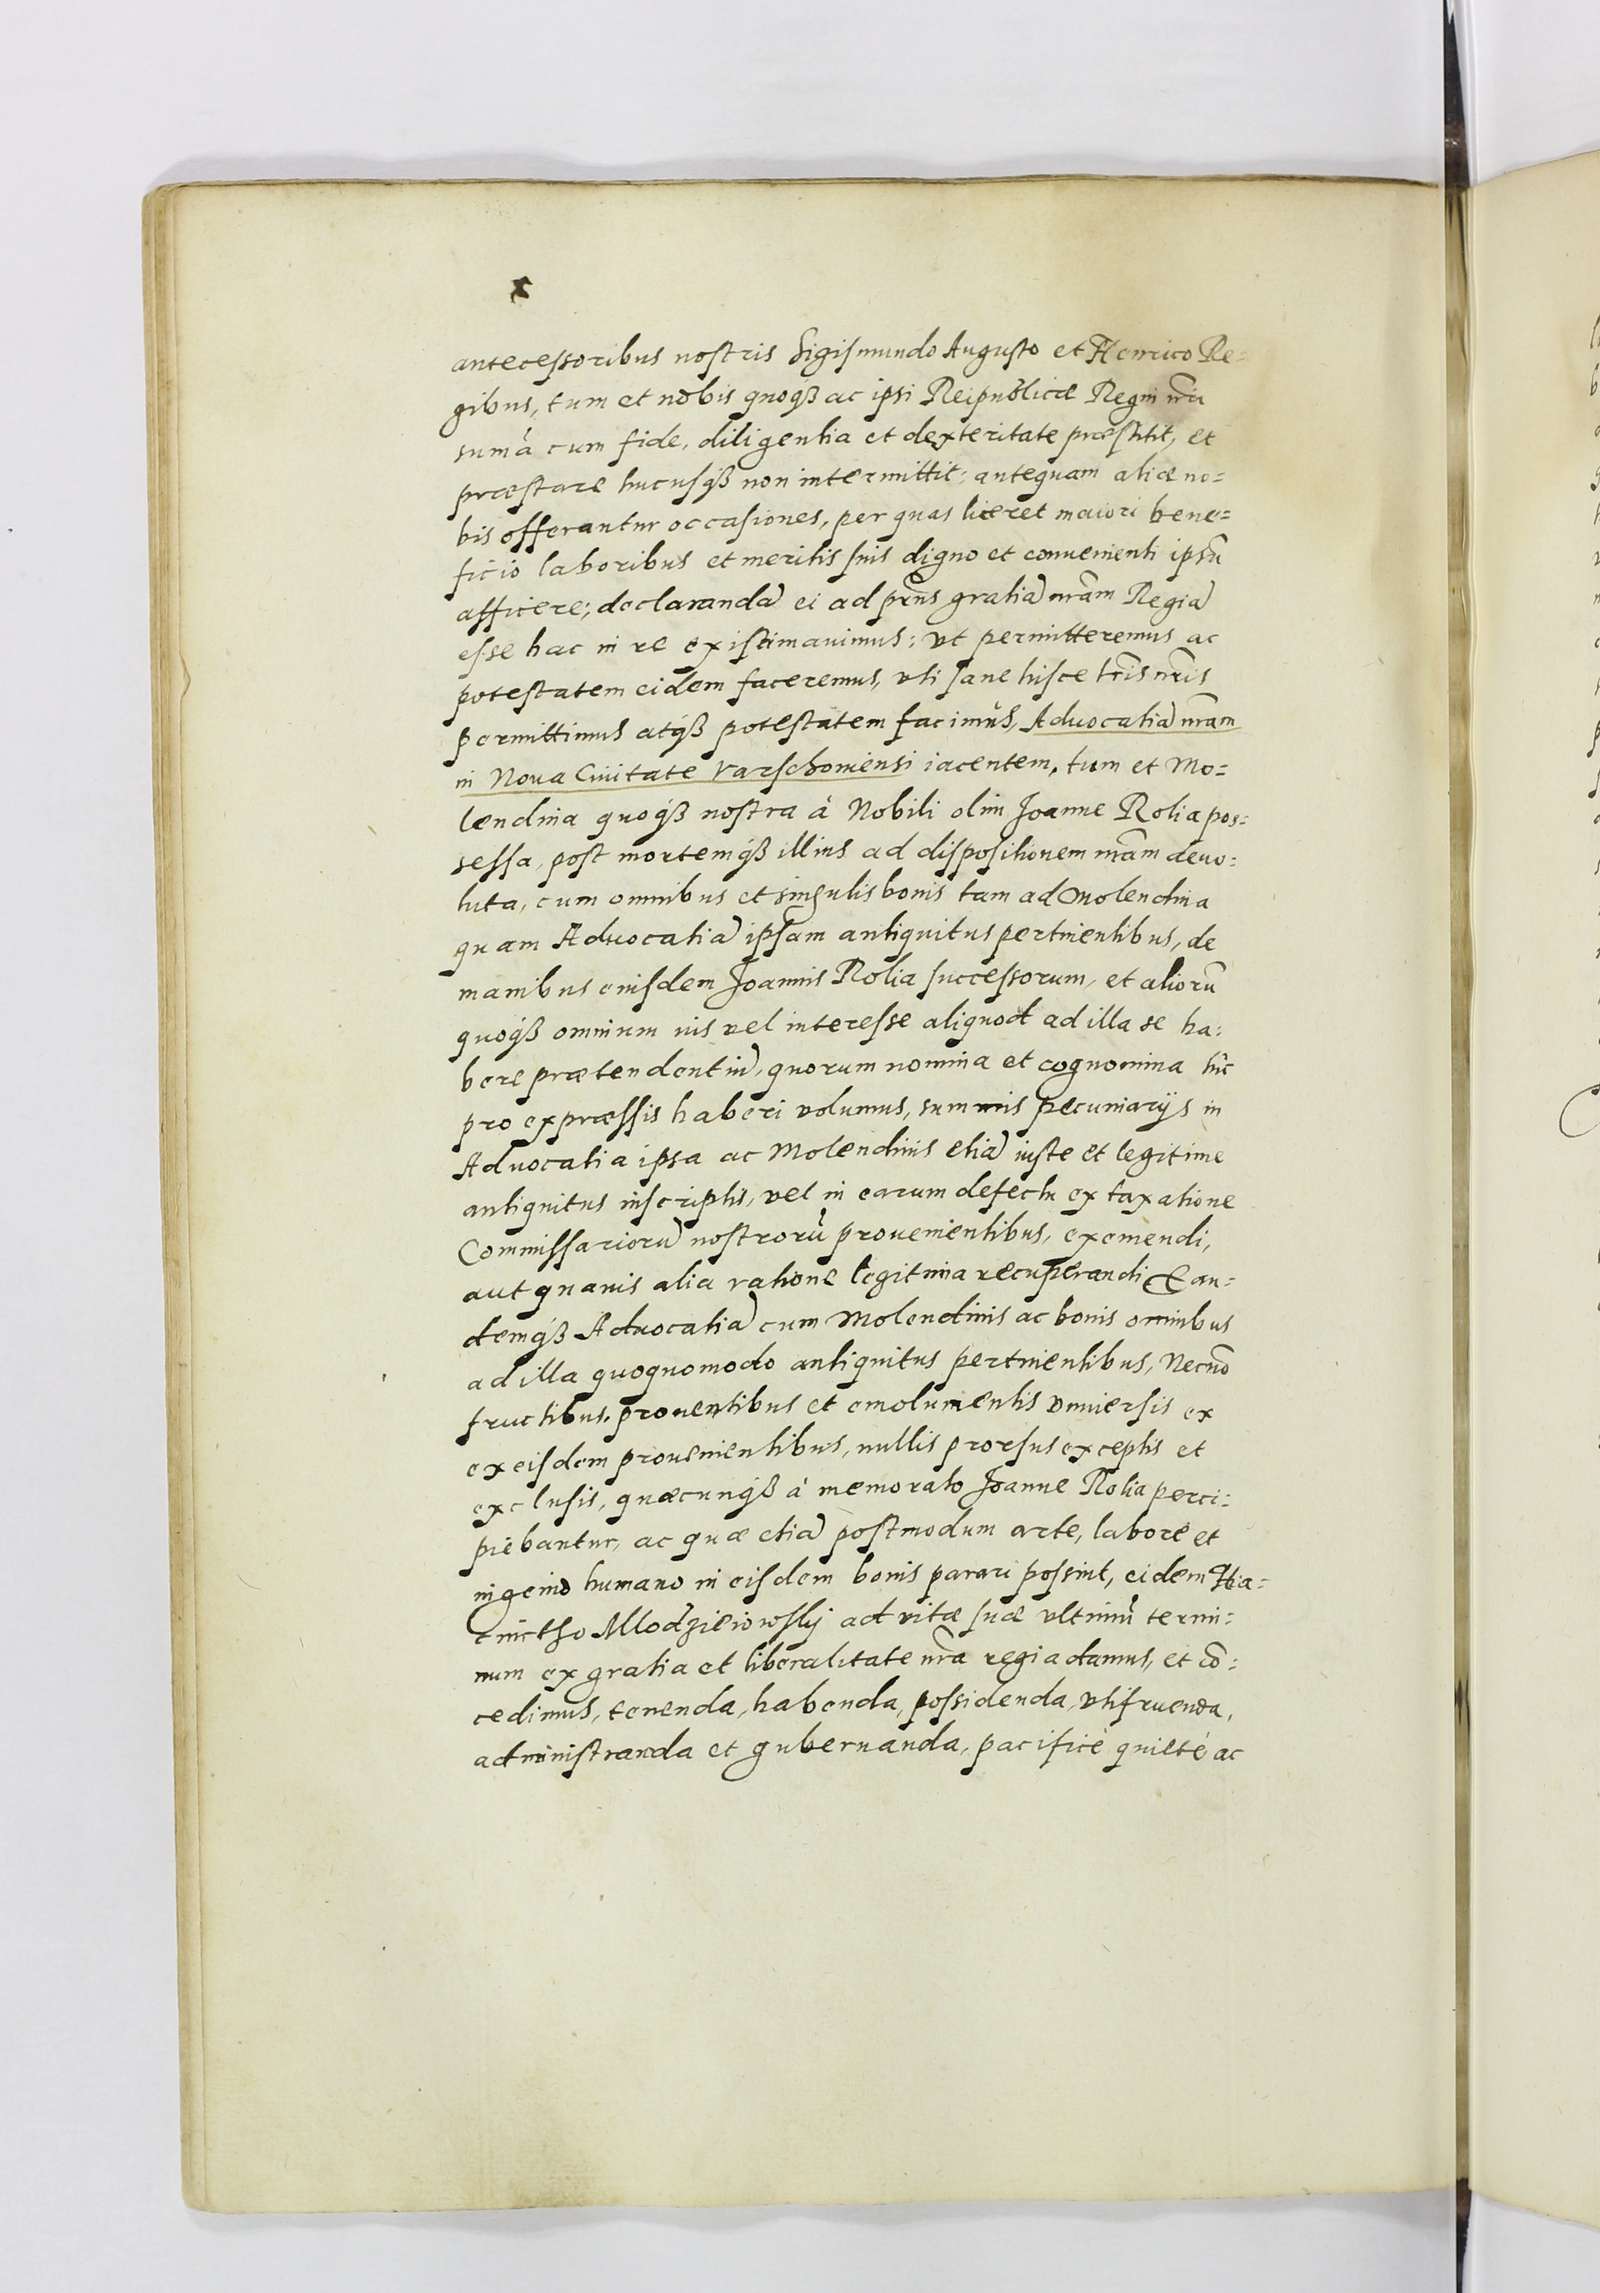 antecessoribus nostris Sigismundo Augusto et Henrico Re=
gibus, tum et nobis quoqȝ ac ipsi Reipublicæ Regni nr̃i
sum̃a cum fide, diligentia et dexteritate præstitit, et
præstare hucusqȝ non intermittit: antequam aliæ no=
bis offerantur occasiones, per quas liceret maiori bene=
ficio laboribus et meritis suis digno et conuenienti ipsũ
afficere; declarandã ei ad prñs gratiã nr̃am Regiã
esse hac in re existimauimus: vt permitteremus ac
potestatem eidem faceremus, vti sane hisce lr̃is nr̃is
permittimus atqȝ potestatem facimus, Aduocatiã nr̃am
in Noua Ciuitate Varschouiensi iacentem, tum et Mo=
lendina quoqȝ nostra à Nobili olim Joanne Rolia pos=
sessa, post mortemqȝ illius ad dispositionem nr̃am deuo=
luta, cum omnibus et singulis bonis tam ad Molendina
quam Aduocatiã ipsam antiquitus pertinentibus, de
manibus eiusdem Joannis Rolia successorum, et aliorũ
quoqȝ omnium ius vel interesse aliquod ad illa se ha=
bere prætendentiũ, quorum nomina et cognomina hic
pro expræssis haberi volumus, summis pecuniarijs in
Aduocatia ipsa ac Molendinis etiã iuste et legitime
antiquitus inscriptis, vel in earum defectu ex taxatione
Commissariorũ nostrorũ prouenientibus, exemendi,
aut quauis alia ratione legitima recuperandi Ean=
demqȝ Aduocatiã cum Molendinis ac bonis omnibus
ad illa quoquomodo antiquitus pertinentibus, Necnõ
fructibus, prouentibus et emolumentis vniuersis ex
ex eisdem prouenientibus, nullis prorsus exceptis et
exclusis, quæcunqȝ à memorato Joanne Rolia perci=
piebantur, ac quæ etiã postmodum arte, labore et
ingenio humano in eisdem bonis parari possint, eidem Hia=
cinctho Mlodzieiowskj ad vitæ suæ vltimũ termi=
num ex gratia et liberalitate nr̃a regia damus, et cõ=
cedimus, tenenda, habenda, possidenda, vtifruenda,
administranda et gubernanda, pacificè quietè ac